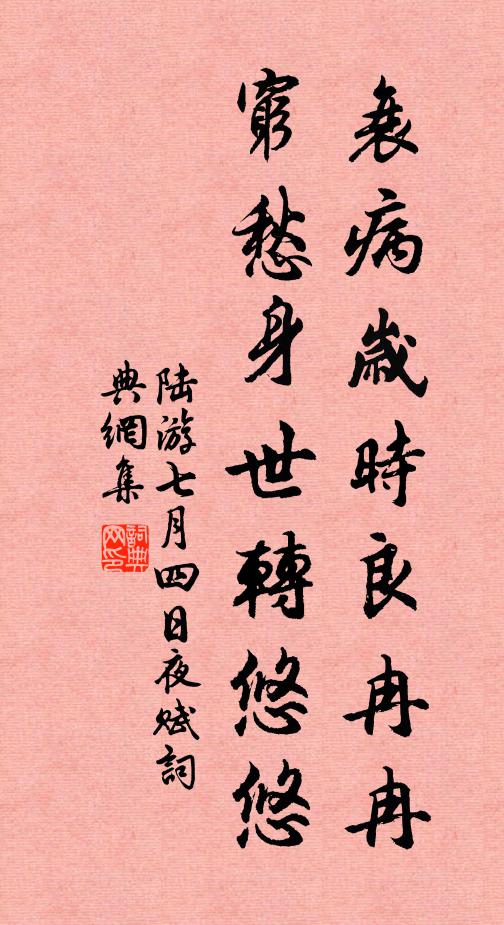 衰病歲時良冉冉
窮愁身世轉悠悠
陸游七月四日夜賦詞
典網集
詞典网印